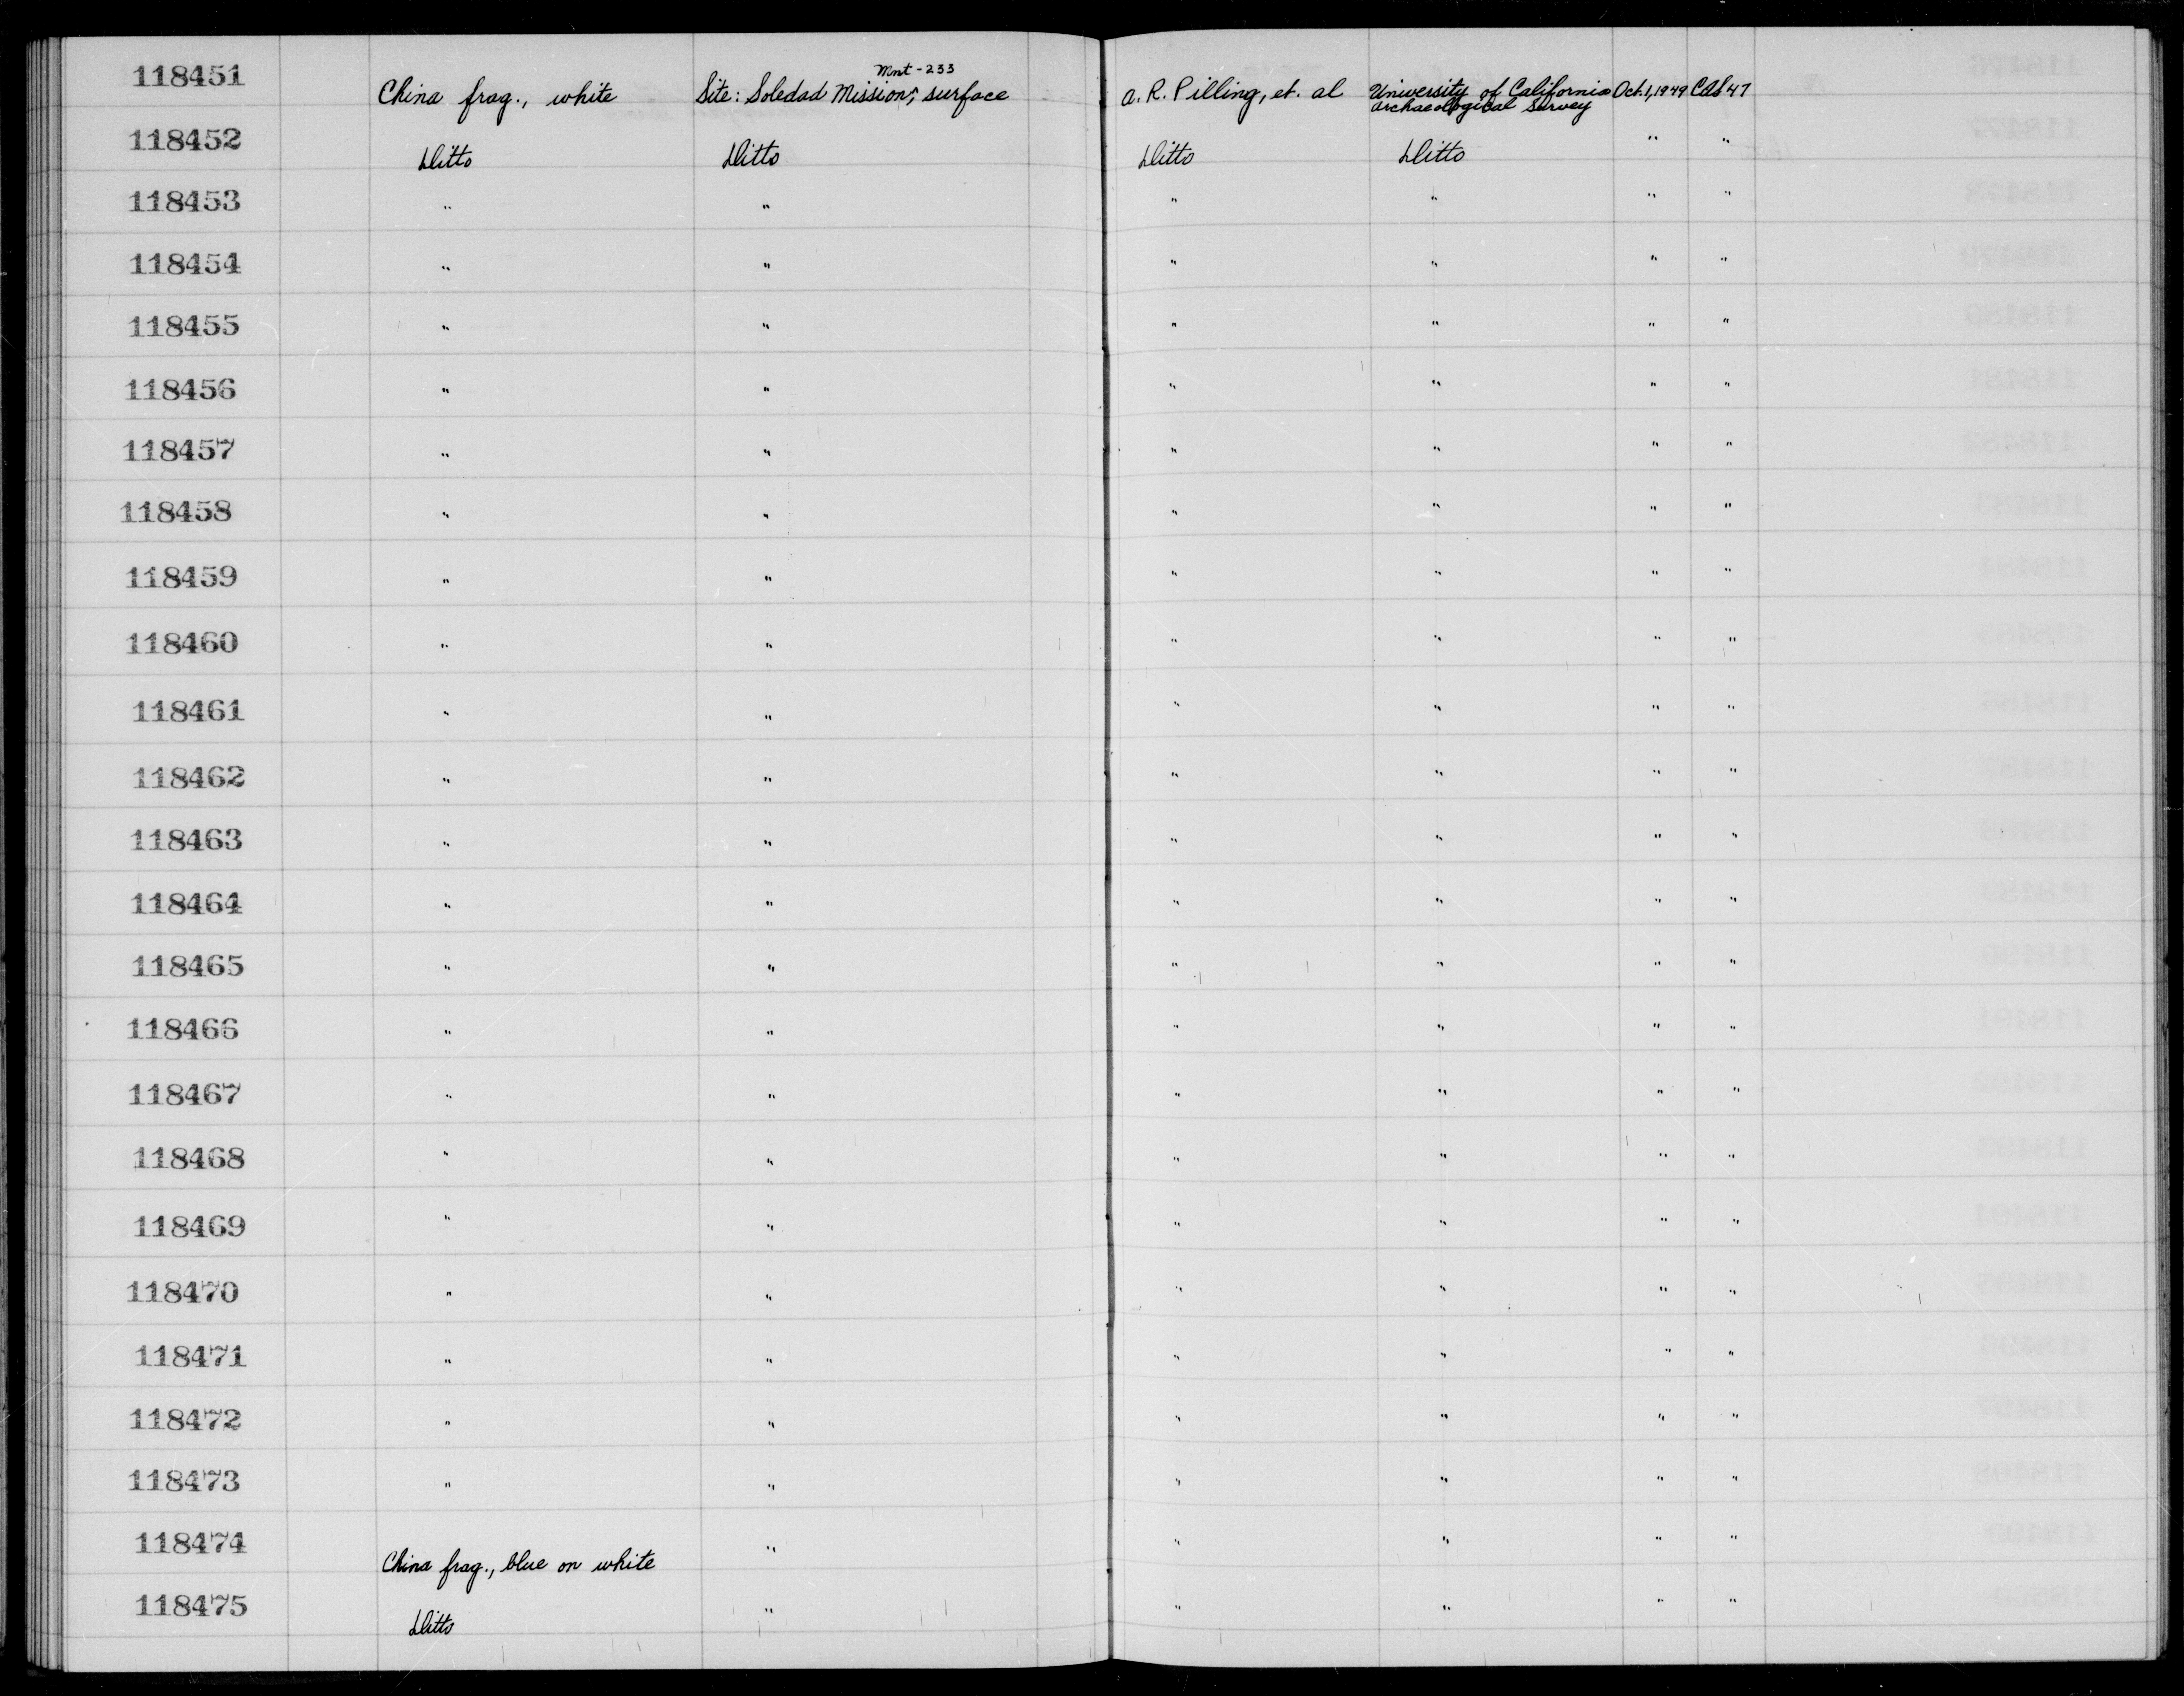 118451 China frag., white Site: Soledad Mission, surface Mnt-233 a. R. Pilling, et. al University of California Archaeological Survey Oct. 1, 1949 47
118452 Ditto Ditto Ditto Ditto " "
118453 " " " " " "
118454 " " " " " "
118455 " " " " " "
118456 " " " " " "
118457 " " " " " "
118458 " " " " " "
118459 " " " " " "
118460 " " " " " "
118461 " " " " " "
118462 " " " " " "
118463 " " " " " "
118464 " " " " " "
118465 " " " " " "
118466 " " " " " "
118467 " " " " " "
118468 " " " " " "
118469 " " " " " "
118470 " " " " " "
118471 " " " " " "
118472 " " " " " "
118473 " " " " " "
118474 China frag., blue on white " " " " "
118475 Ditto " " " " "